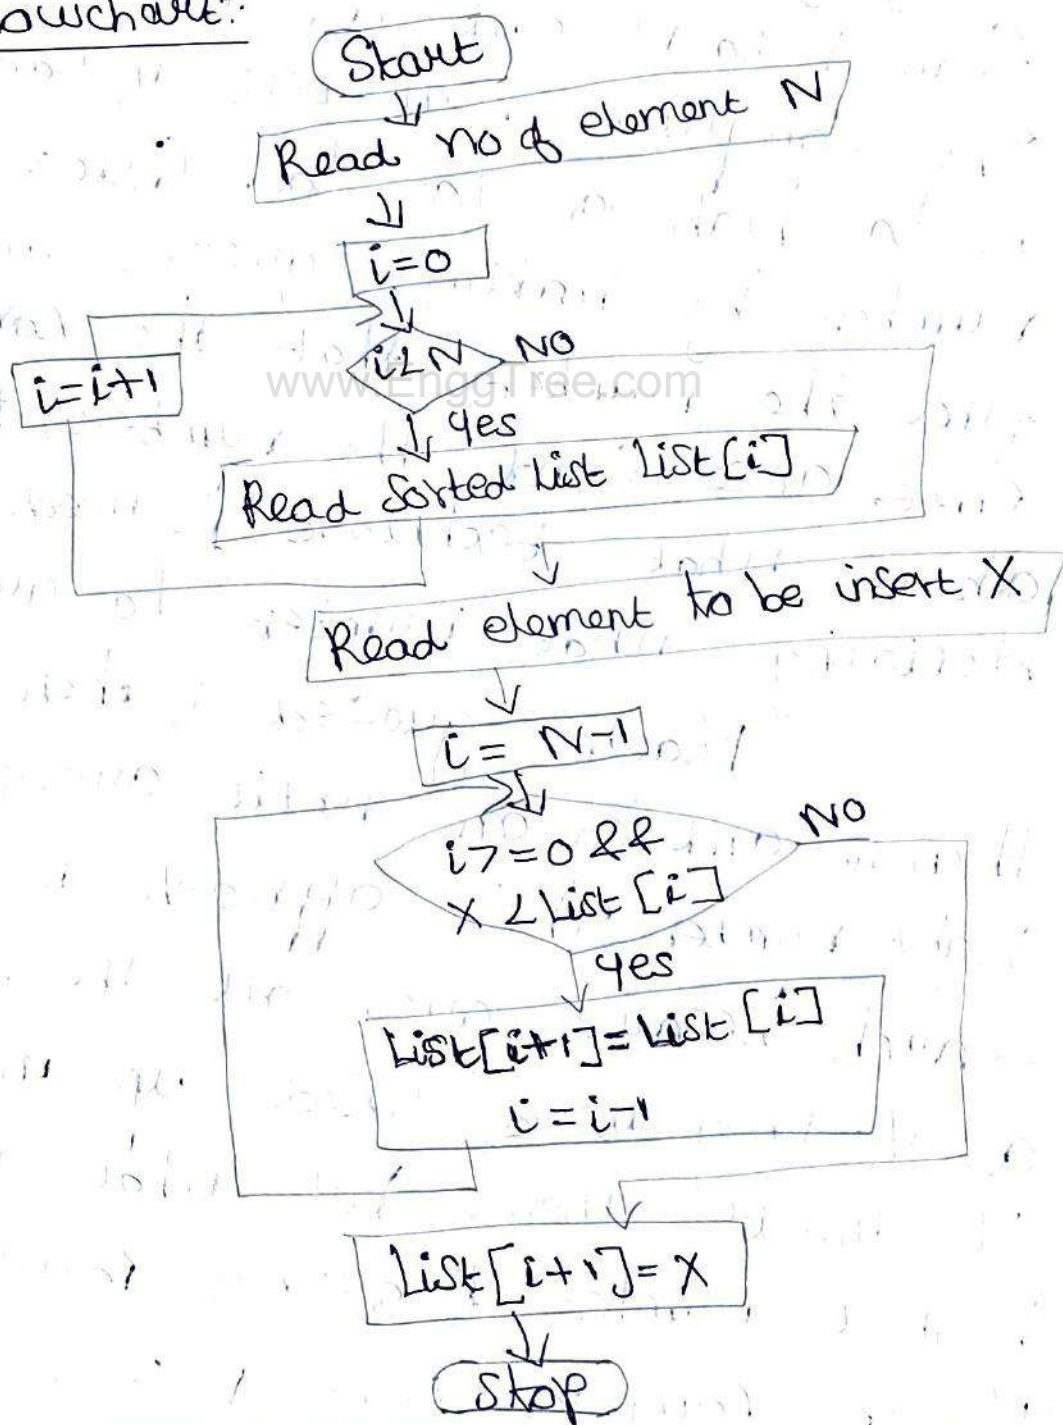 owchart:
Start
Read no of element N
i=0
i<N
NO
i=i+1
www.EnggTree.com
yes
Read Sorted List List[i]
Read element to be insert X
i= N-1
i>=0 &&
X <List [i]
NO
yes
List[i+1]=List [i]
i=i-1
List[i+1]=X
Stop